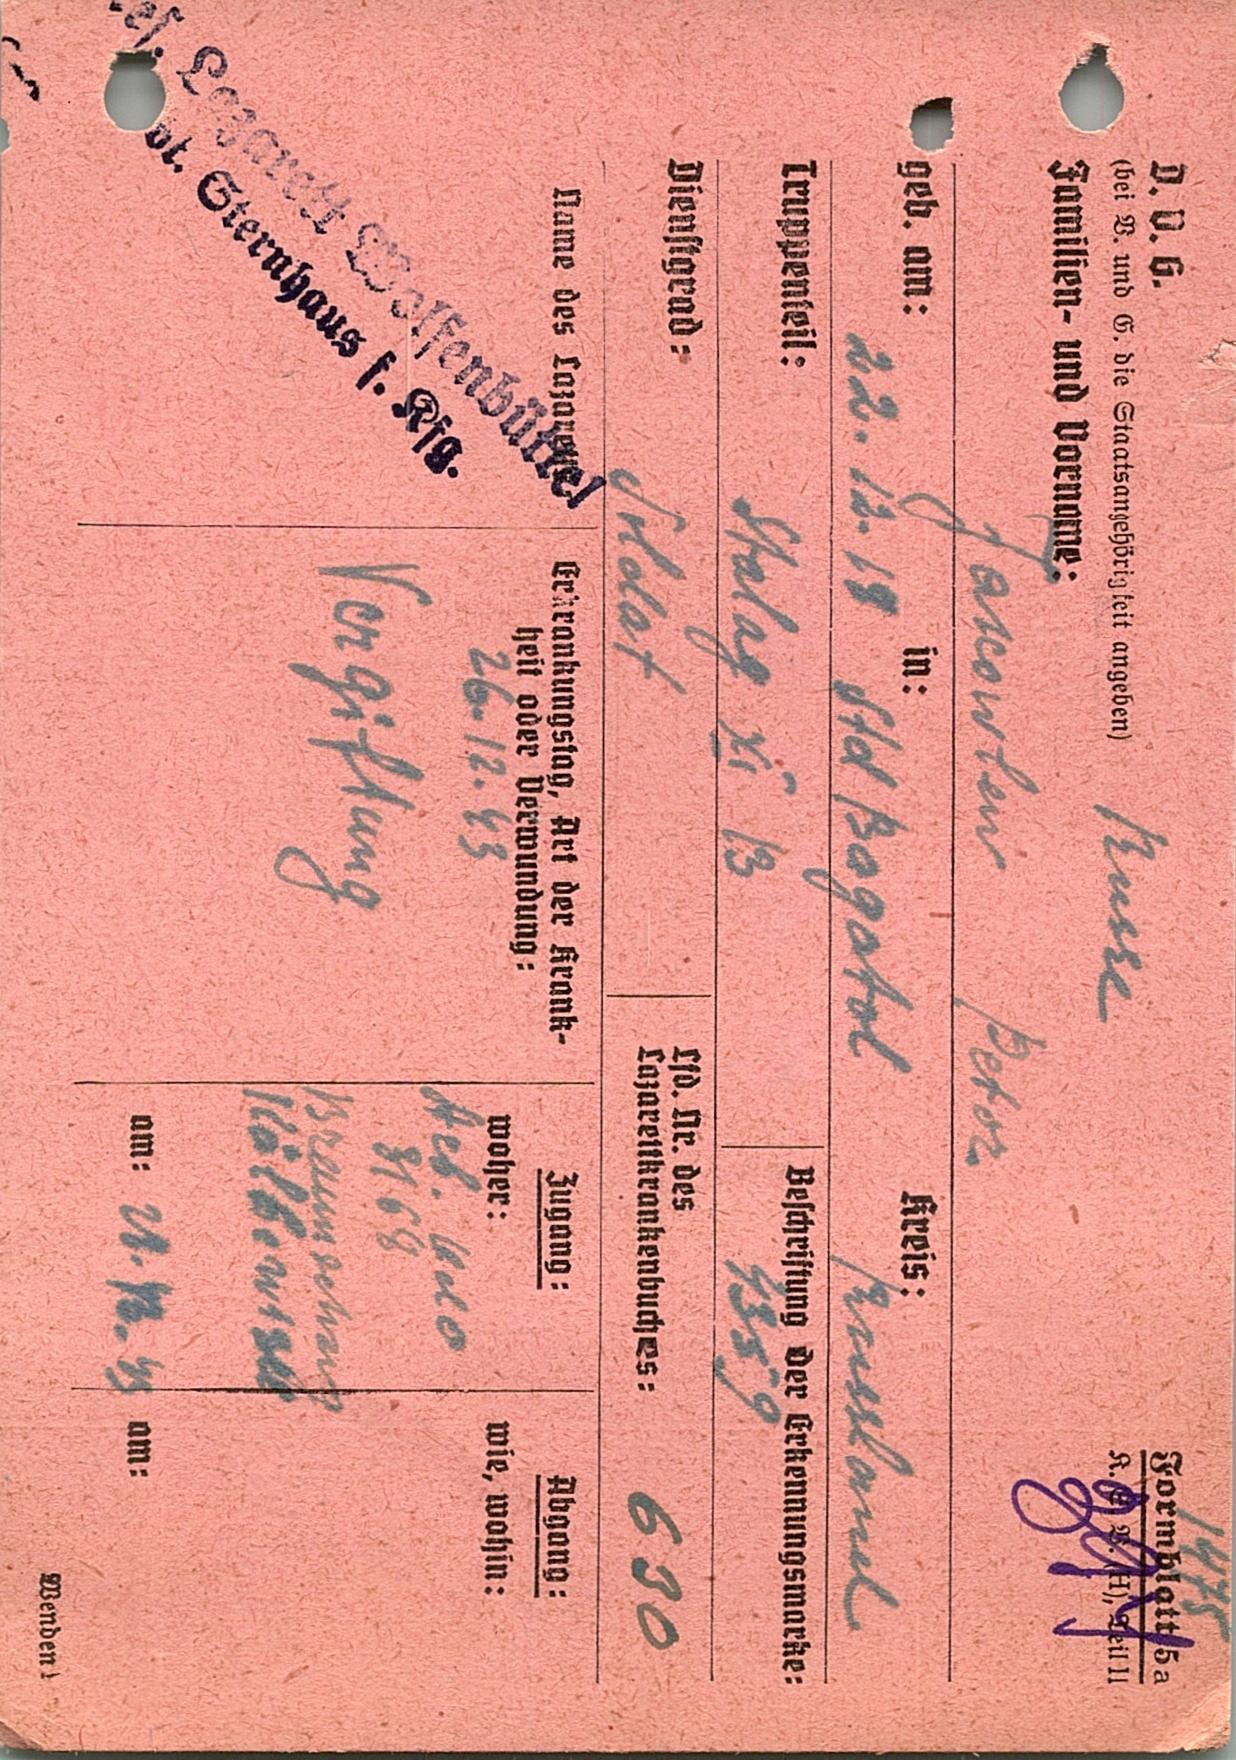 1475
Formblatt 5a
D. V. G.
(bei V. und G. die Staatsangehörigkeit angeben)
Russe
K. S. V. (H), Teil II
Familien- und Vorname:
Jascowlew Petor
geb. am: 22. 12. 18 in: Kreis: Russland
Truppenteil: Stalag XI B
Beschriftung der Erkennungsmarke:
4359
Dienstgrad: Soldat
Lfd. Nr. des
Lazarettkrankenbuches: 630
Name des Lazaretts
Res. Lazarett Wolfenbüttel
Abt. Sternhaus f. Kfg.
Erkrankungstag, Art der Krank-
heit oder Verwundung:
26. 12. 43
Vergiftung
Zugang:
woher:
Arb. Kdo
3168
Braunschweig
am: 12. 43
Abgang:
wie, wohin:
am:
Wenden!